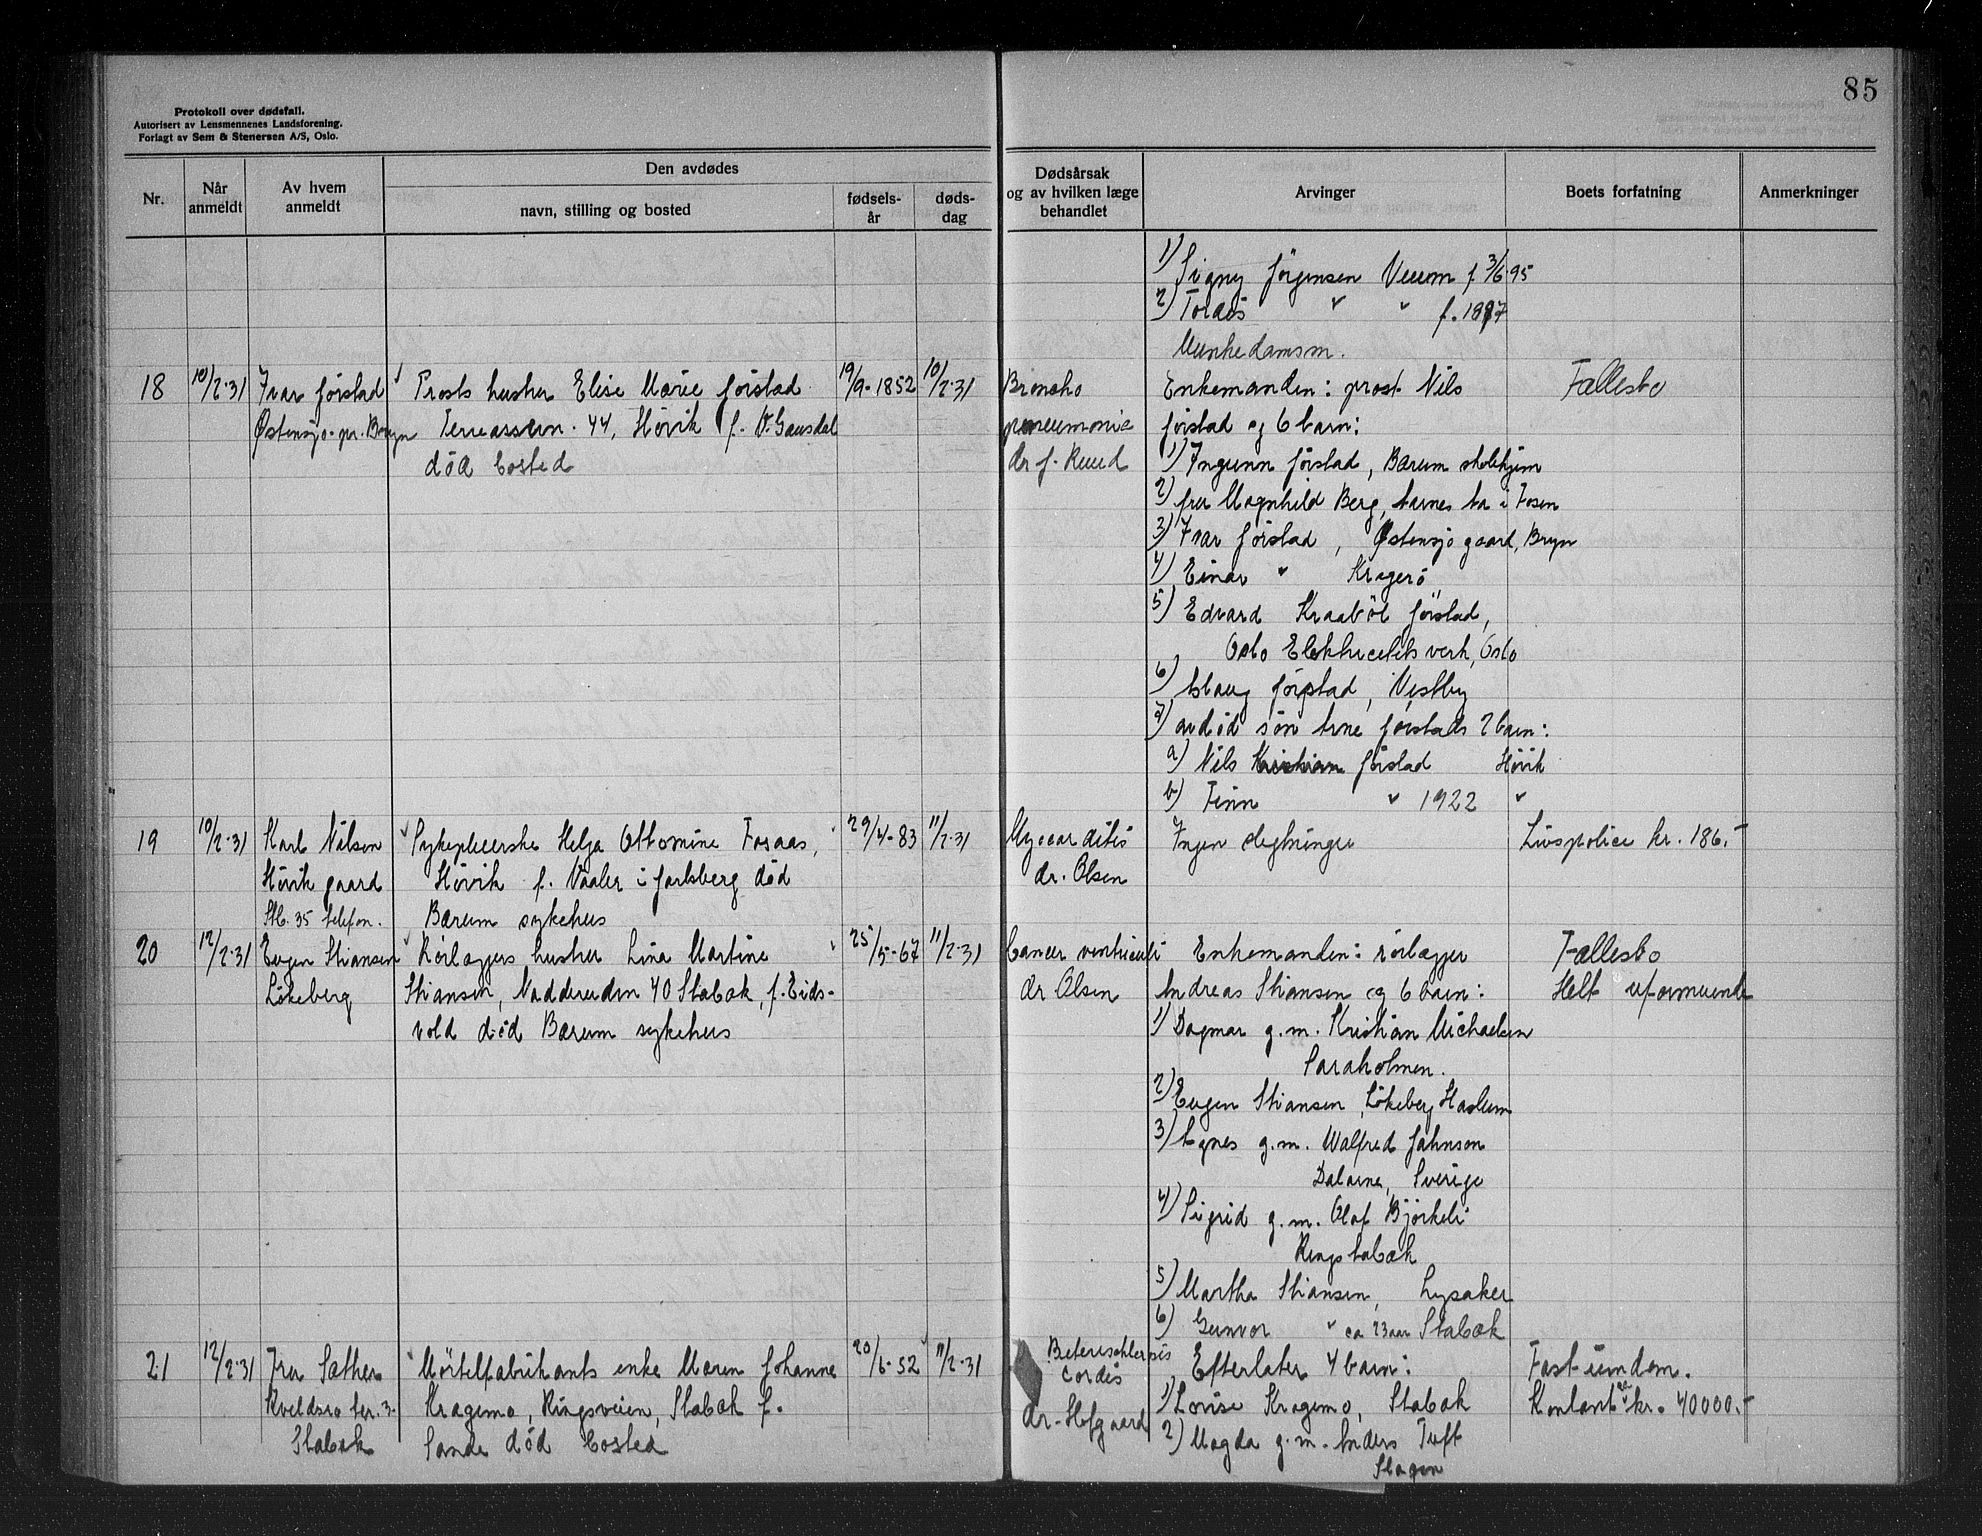 85
Protokoll over dødsfall.
Autorisert av Lensmennenes Landsforening.
Forlagt av Sem & Stenersen A/S, Oslo.
Nr.
Når anmeldt
Av hvem anmeldt
Den avdødes
navn, stilling og bosted
fødsels-år
døds-dag
Dødsårsak og av hvilken læge behandlet
Arvinger
Boets forfatning
Anmerkninger
1) Signy Jörgensen f. 3/6.95
2) Tordis " " f. 1897
Munkedamsm.
18 10/2-31 Ivar Jörstad Prosts hustru Elise Marie Jörstad 19/9-1852 10/2-31 Broncho Enkemanden: prost Nils Fællesbo
Østensjo pr. Bryn 44, Høvik f. Ø. Gausdal pneumonie Jörstad og 6 barn:
död bosted dr J. Ruud 1) Ingunn Jörstad, Bærum skolehjem
2) fru Magnhild Berg, Aarnes sta i Fosen
3) Ivar Jörstad, Østensjo gaard, Bryn
4) Einar " Kragerö
5) Edvard Kraaböl Jörstad,
Oslo Elektricitetsverk, Oslo
6) Aslaug Jörstad, Vestby
7) avdöd sön Arne Jörstads 2 barn:
a) Nils Kristian Jörstad Høvik
b) Finn " 1922 "
19 10/2-31 Karl Nilsen Sykepleierske Helga Ottomine Fosaas, 29/4-83 11/2-31 Myocarditis Ingen slegtninger Livspolice kr. 186.-
Høvik gaard Høvik f. Vaaler i Jarlsberg död dr. Olsen
Stb. 35 telefon. Bærum sykehus
20 12/2-31 Eugen Stiansen Rörlæggers hustru Lina Martine 25/5-67 11/2-31 Cancer ventriculi Enkemanden: rörlægger Fællesbo
Lökeberg Stiansen, Nadderuden 40 Stabæk, f. Eids- dr Olsen Andreas Stiansen og 6 barn: Helt uformuende
vold död Bærum sykehus 1) Dagmar g.m. Kristian Michaelsen
Saraholmen.
2) Eugen Stiansen, Lökeberg Haslum
3) Agnes g.m. Walfred Johnson
Dalarne, Sverige
4) Sigrid g.m. Olaf Björkeli
Ringstabæk
5) Martha Stiansen, Lysaker
6) Gunvor " ca 23 aar Stabæk
21 12/2-31 Fru Sæther Mörtelfabrikants enke Maren Johanne 20/6-52 11/2-31 Efterlater 4 barn: Fast eiendom.
Kveldsro ter. 3. Kragemo, Ringsveien, Stabæk f. cordis 1) Lovise Kragemo, Stabæk Kontant ca kr. 40000.-
Stabæk Sande död bosted dr. Hofgaard 2) Magda g.m. Anders Tuft
Slagen